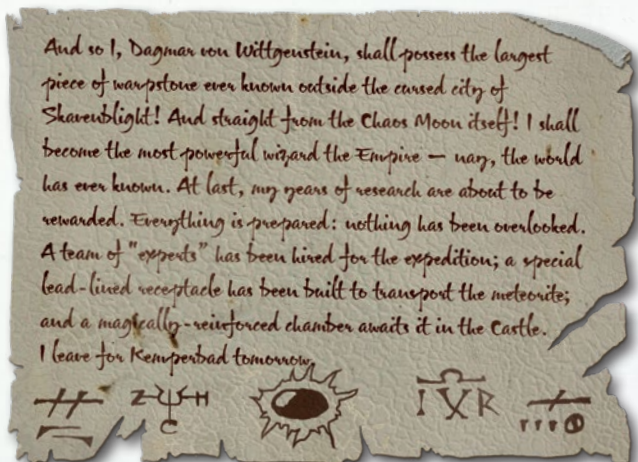 And so I, Dagmar von Wittgenstein, shall possess the largest
piece of warpstone ever known outside the cursed city of
Skavenblight! And straight from the Chaos Moon itself! I shall
become the most powerful wizard the Empire — nay, the world
has ever known. At last, my years of research are about to be
rewarded. Everything is prepared: nothing has been overlooked.
A team of "experts" has been hired for the expedition; a special
lead-lined receptacle has been built to transport the meteorite;
and a magically-reinforced chamber awaits it in the Castle.
I leave for Kemperbad tomorrow.
Z H
C
I X R